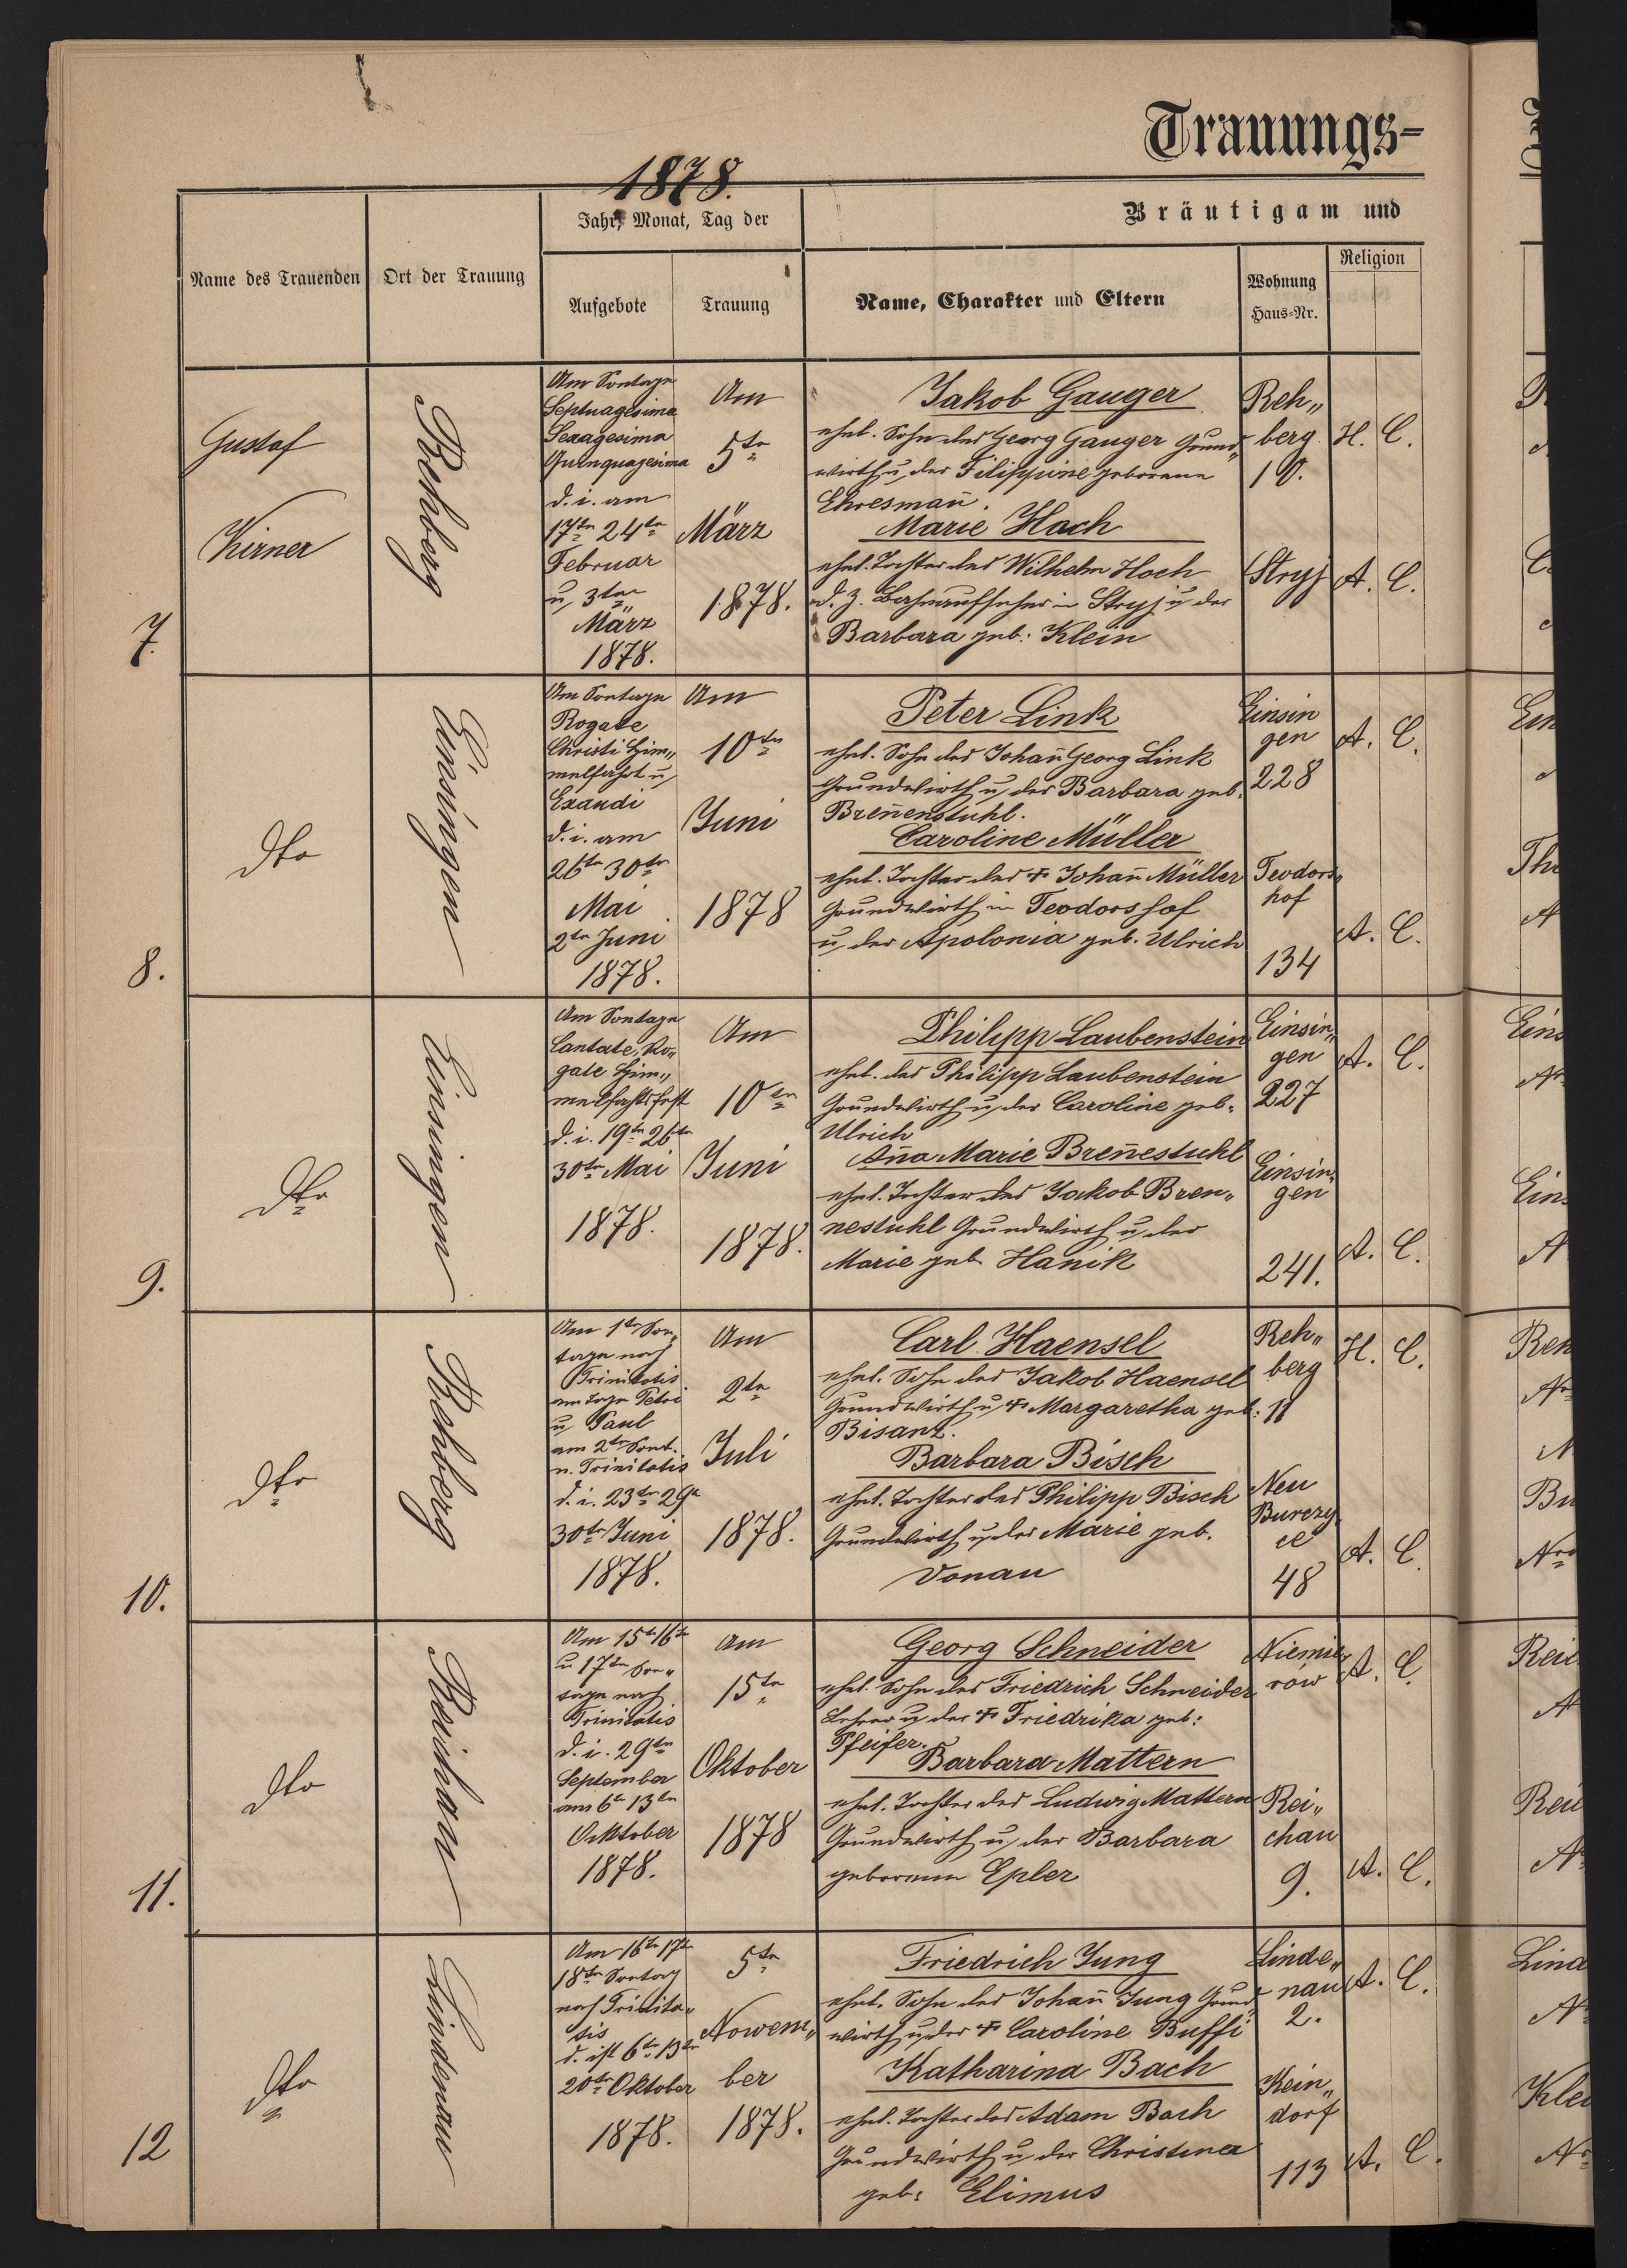 Trauungs-
1878.
Jahr, Monat, Tag der
Bräutigam und
Name des Trauenden
Ort der Trauung
Aufgebote
Trauung
Name, Charakter und Eltern
Wohnung
Haus-Nr.
Religion
7.
Gustaf
Kirner
Rehberg
Am Sontage
Septuagesima
Sexagesima
Quinquagesima
d. i. am
17tn 24tn
Februar
u. 3ten
März
1878.
Am
5tn
März
1878.
Jakob Gauger
ehel. Sohn des Georg Gauger Grund„
wirth u. der Filippine geborene
Ehresmañ.
Marie Hach
ehel. Tochter des Wilhelm Hoch
d. z. Bahnaufseher in Stryj u. der
Barbara geb: Klein
Reh„
berg
10.
Stryj
H. C.
A. C.
8.
dto
Einsingen
Am Sontage
Rogate
Christi Him„
melfahrt u.
Exaudi
d. i. am
26tn 30tn
Mai
2tn Juni
1878.
Am
10tn
Juni
1878
Peter Link
ehel. Sohn des Johañ Georg Link
Grundwirth u. der Barbara geb.
Breñenstuhl.
Caroline Müller
ehel. Tochter des Johañ Müller
Grundwirth in Teodorshof
u. der Apolonia geb. Ulrich
Einsin
gen
228
Teodors„
hof
134
A. C.
A. C.
9.
dto
Einsingen
Am Sontage
Cantate, Ro„
gate Him„
melfahrtsfest
d. i. 19tn 26tn
30tn Mai
1878.
Am
10tn
Juni
1878.
Philipp Laubenstein
ehel. des Philipp Laubenstein
Grundwirth u. der Caroline geb.
Ulrich
Aña Marie Breñestuhl
ehel. Tochter des Jakob Bren„
nestuhl Grundwirth u. der
Marie geb Hanik
Einsin„
gen
227
Einsin„
gen
241.
A. C.
A. C.
10.
dto
Rehberg
Am 1tn Son„
tage nach
Trinitatis
am Tage Petri
u. Paul
am 2tn Sont.
n. Trinitatis
d. i. 23tn 29tn
30tn Juni
1878.
Am
2tn
Juli
1878.
Carl Haensel
ehel. Sohn des Jakob Haensel
Grundwirth u. Margaretha geb:
Bisanz.
Barbara Bisch
ehel. Tochter des Philipp Bisch
Grundwirth u. der Marie geb.
Donau
Reh„
berg
11
Neu
48
H. C.
A. C.
11.
dto
Reichau
Am 15tn 16tn
u 17tn Son„
tage nach
Trinitatis
d. i. 29tn
September
am 6tn 13tn
Oktober
1878.
Am
15tn
Oktober
1878
Georg Schneider
ehel. Sohn des Friedrich Schneider
Lehrer u. der Friedrika geb:
Pfeifer.
Barbara Mattern
ehel. Tochter des Ludwig Mattern
Grundwirth u. der Barbara
geborene Epler
Niemie„
rów
Rei„
chau
9.
A. C.
A. C.
12
dto
Lindenau
Am 16tn 17tn
18tn Sontag
nach Trinita„
tis
d. ist 6tn 13tn
20tn Oktober
1878.
5tn
Nowem„
ber
1878.
Friedrich Jung
ehel. Sohn des Johañ Jung Grund„
wirth u. der Caroline Buffi
Katharina Bach
ehel. Tochter des Adam Bach
Grundwirth u. der Christina
geb: Elimus
Linde„
nau
2.
dorf
113
A. C.
A. C.